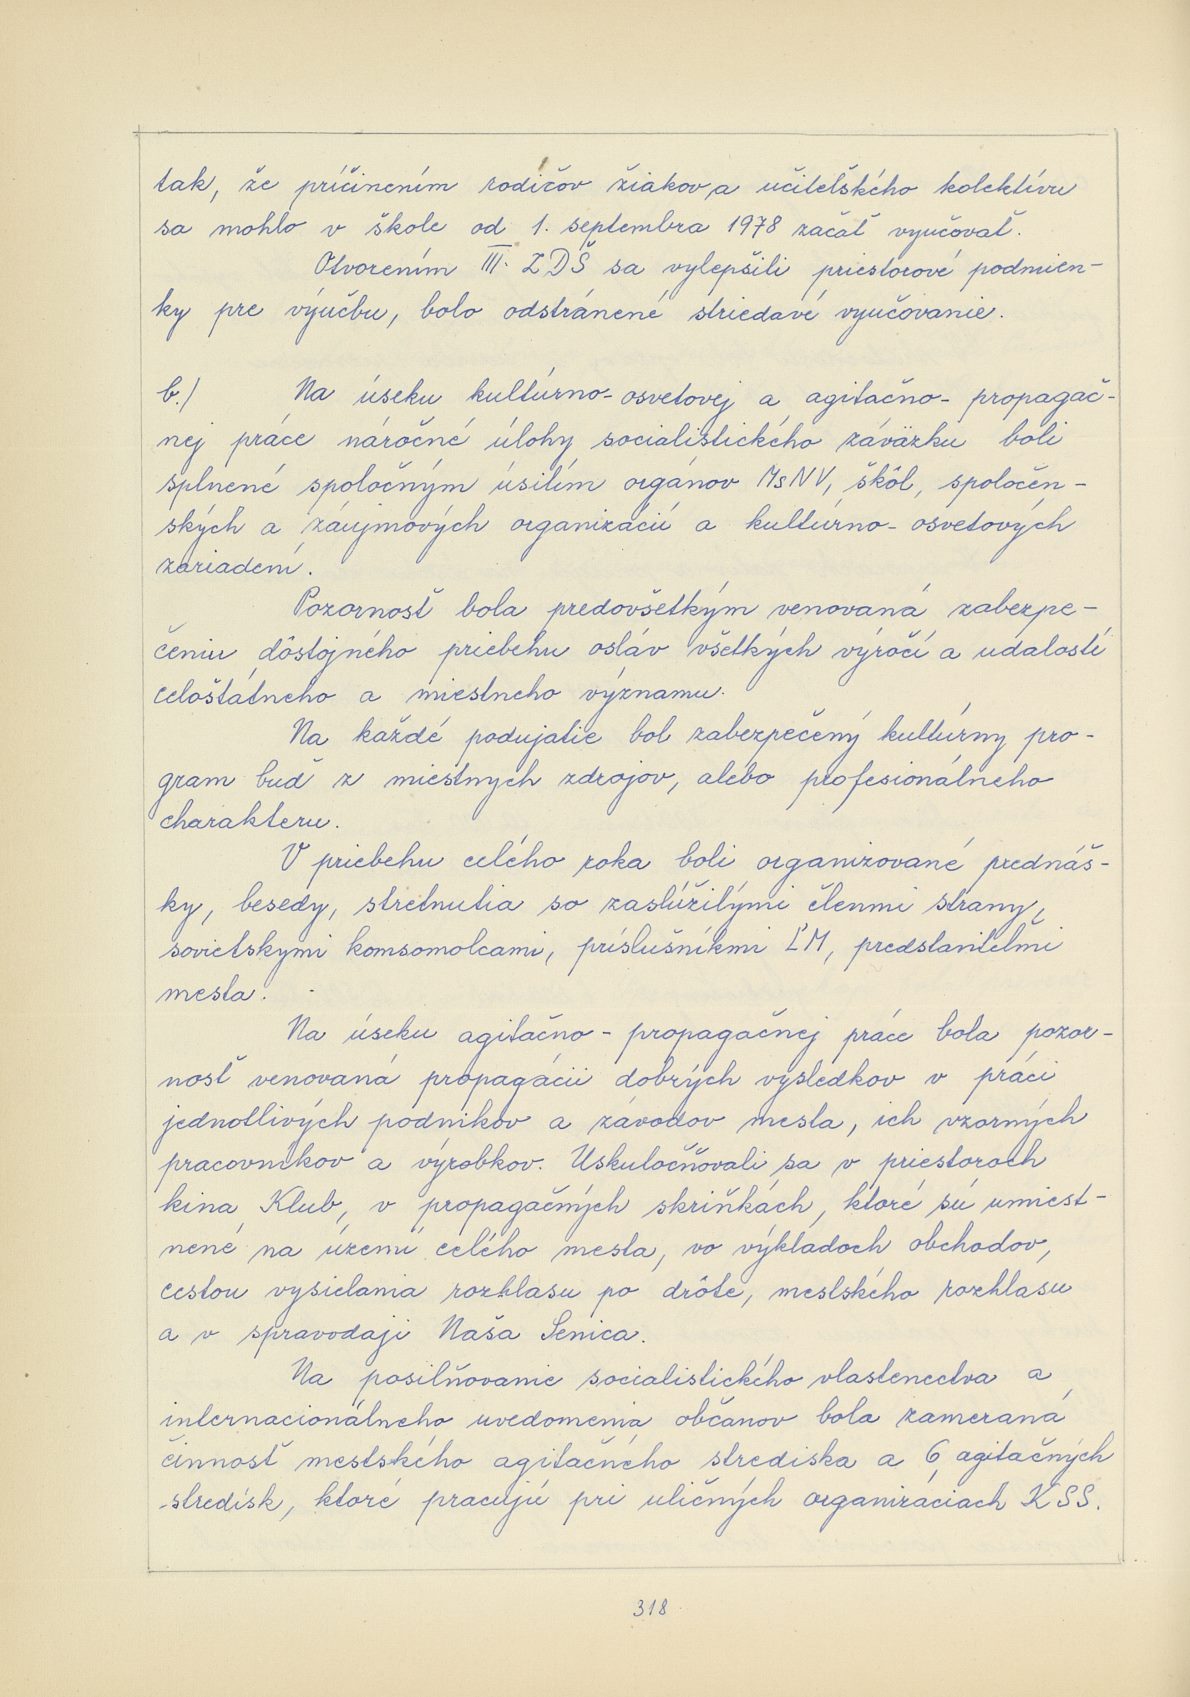 tak, že príčinením rodičov žiakov a učiteľského kolektívu
sa mohlo v škole od 1. septembra 1978 začať vyučovať.
Otvorením III. ZDŠ sa vylepšili priestorové podmien-
ky pre výučbu, bolo odstránené striedavé vyučovanie.
b./ Na úseku kultúrno-osvetovej a agitačno-propagač-
nej práce náročné úlohy socialistického záväzku boli
splnené spoločným úsilím orgánov MsNV, škôl, spoločen-
ských a záujmových organizácií a kultúrno-osvetových
zariadení.
Pozornosť bola predovšetkým venovaná zabezpe-
čeniu dôstojného priebehu osláv všetkých výročí a udalostí
celoštátneho a miestneho významu.
Na každé podujatie bol zabezpečený kultúrny pro-
gram buď z miestnych zdrojov, alebo profesionálneho
charakteru.
V priebehu celého roka boli organizované prednáš-
ky, besedy, stretnutia so zaslúžilými členmi strany,
sovietskymi komsomolcami, príslušníkmi ĽM, predstaviteľmi
mesta.
Na úseku agitačno-propagačnej práce bola pozor-
nosť venovaná propagácii dobrých výsledkov v práci
jednotlivých podnikov a závodov mesta, ich vzorných
pracovníkov a výrobkov. Uskutočňovali sa v priestoroch
kina Klub, v propagačných skriňkách, ktoré sú umiest-
nené na území celého mesta, vo výkladoch obchodov,
cestou vysielania rozhlasu po drôte, mestského rozhlasu
a v spravodaji Naša Senica.
Na posilňovanie socialistického vlastenectva a
internacionálneho uvedomenia občanov bola zameraná
činnosť mestského agitačného strediska a 6 agitačných
stredísk, ktoré pracujú pri uličných organizáciach KSS.
318